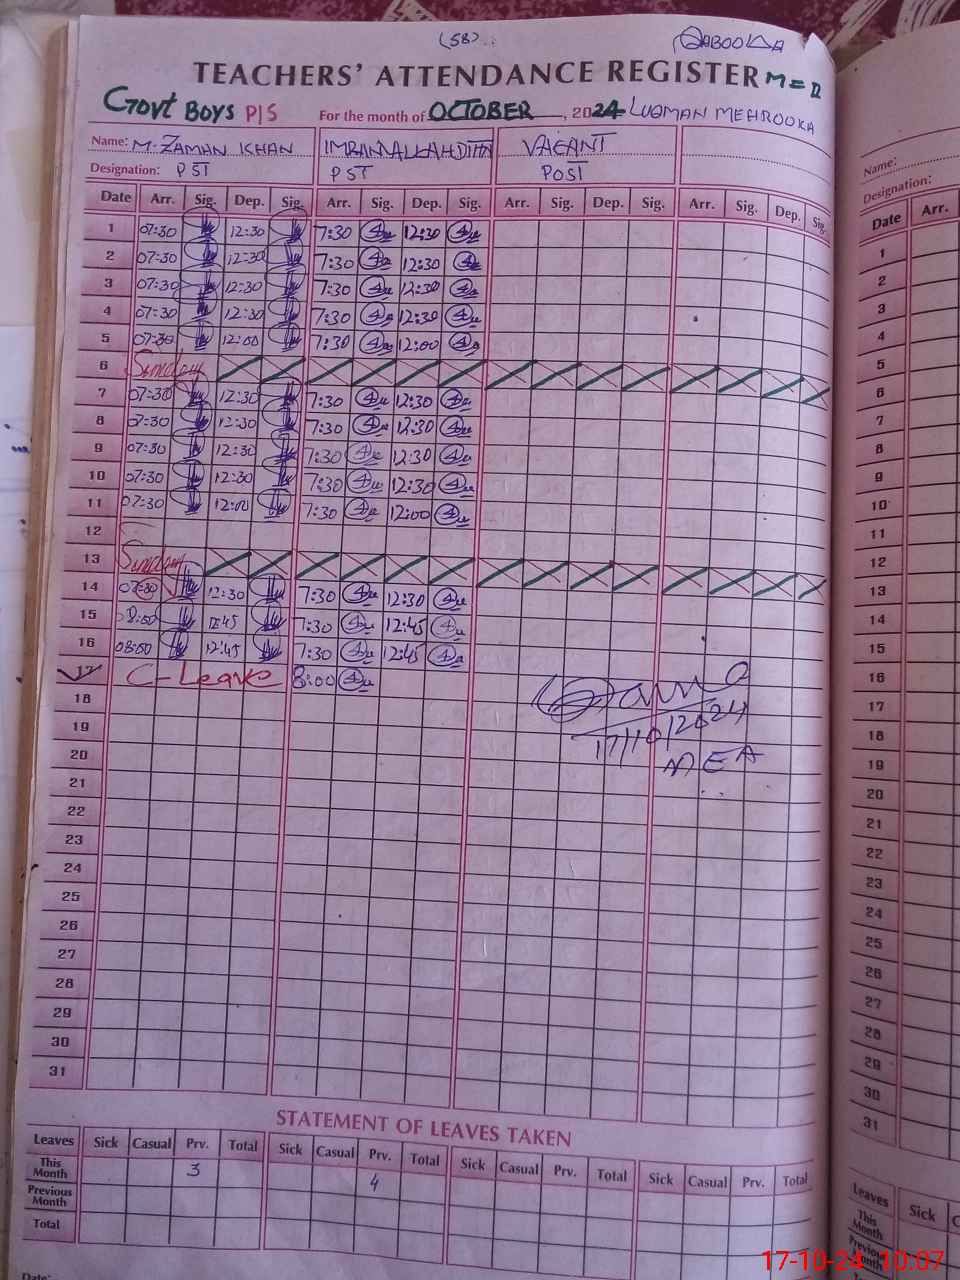 (58)
QABOOLA
TEACHERS' ATTENDANCE REGISTER M=D
Govt BOYS P/S For the month of OCTOBER, 2024 LUQMAN MEHROOKA
Name: M. ZAMAN KHAN IMRAN ALLAH DITTA VACANT
Designation: PST PST POST
Date Arr. Sig. Dep. Sig. Arr. Sig. Dep. Sig. Arr. Sig. Dep. Sig. Arr. Sig. Dep. Sig.
1 07:30 12:30 7:30 12:30
2 07:30 12:30 7:30 12:30
3 07:30 12:30 7:30 12:30
4 07:30 12:30 7:30 12:30
5 07:30 12:00 7:30 12:00
6 Sunday
7 07:30 12:30 7:30 12:30
8 07:30 12:30 7:30 12:30
9 07:30 12:30 7:30 12:30
10 07:30 12:30 7:30 12:30
11 07:30 12:00 7:30 12:00
12
13 Sunday
14 07:30 12:30 7:30 12:30
15 12:45 7:30 12:45
16 08:00 12:45 7:30 12:45
17 C-Leave 8:00
18
17/10/2024
19
MEA
20
21
22
23
24
25
26
27
28
29
30
31
STATEMENT OF LEAVES TAKEN
Leaves Sick Casual Prv. Total Sick Casual Prv. Total Sick Casual Prv. Total Sick Casual Prv. Total
This Month 3 4
Previous Month
Total
Date:
Name:
Designation:
Date Arr.
1
2
3
4
5
6
7
8
9
10
11
12
13
14
15
16
17
18
19
20
21
22
23
24
25
26
27
28
29
30
31
Leaves Sick
This Month
Previous Month
Total
17-10-24 10:07